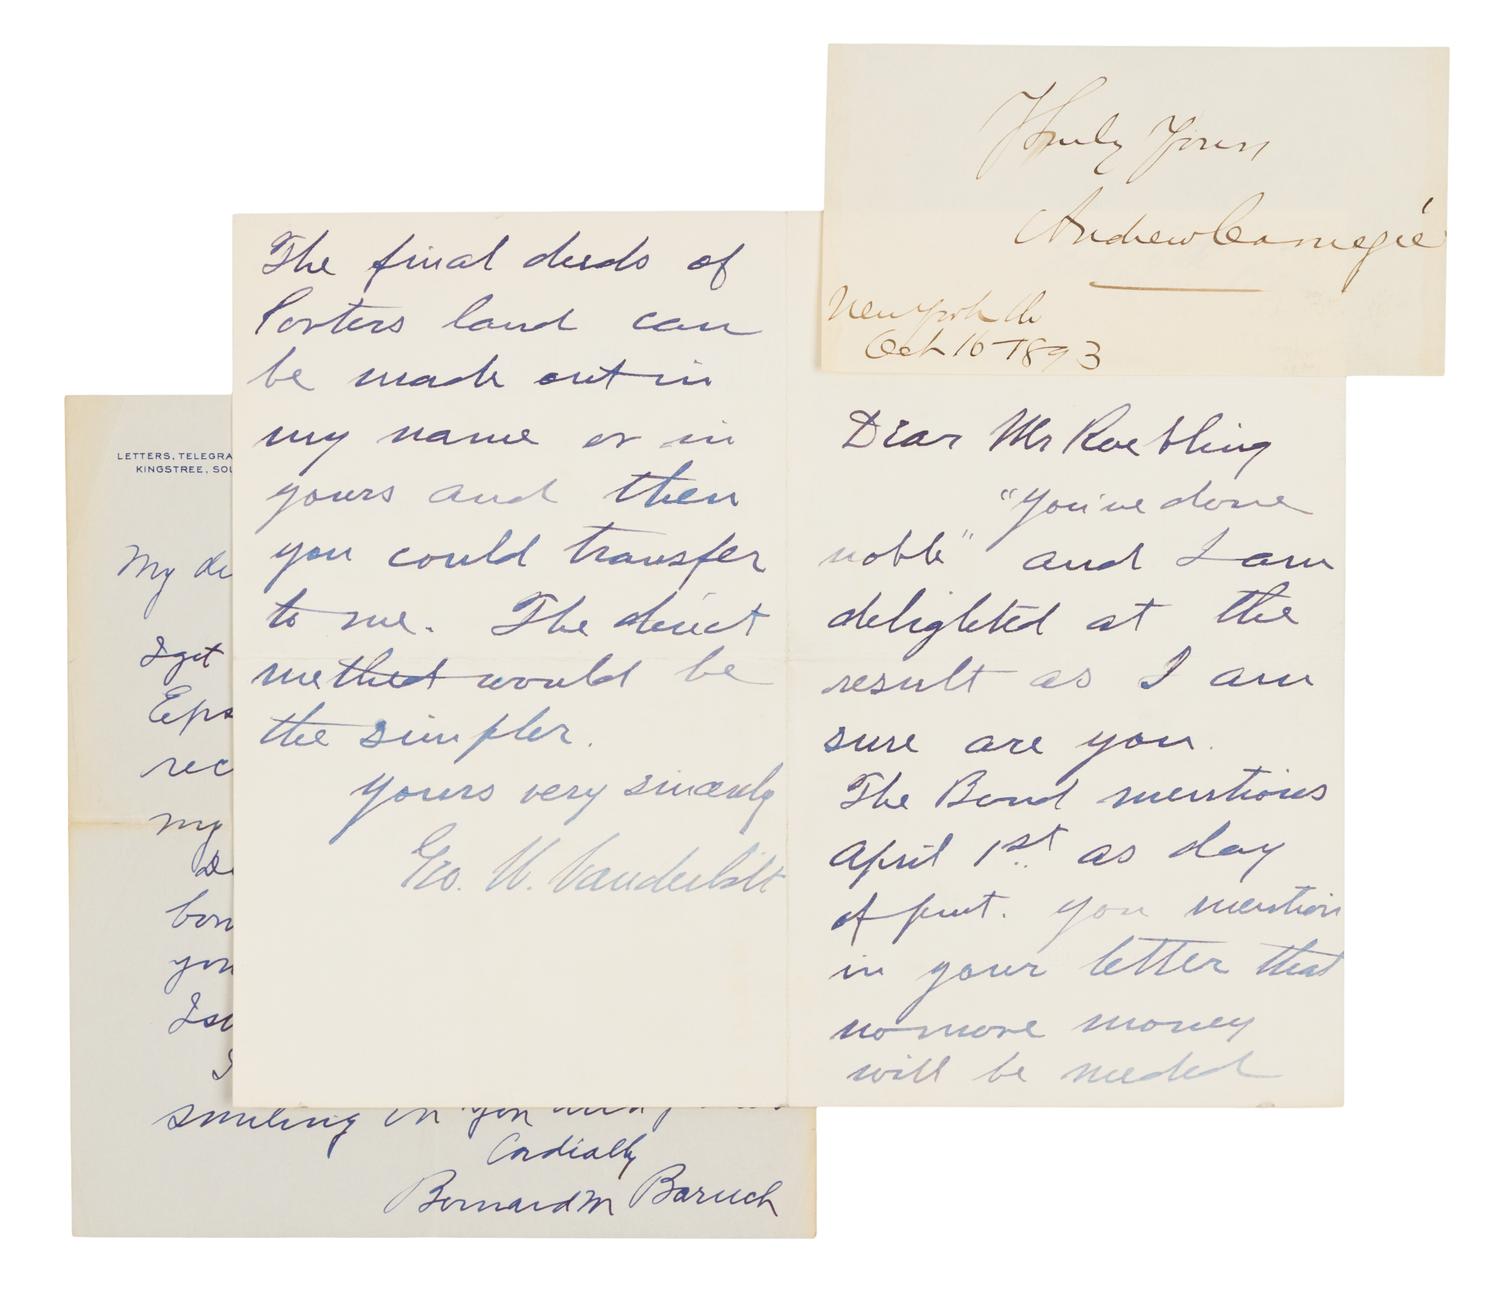 Truly Yours
Andrew Carnegie
New York
Oct 16 1893
Dear Mr Roebling
"You've done
noble" and I am
delighted at the
result as I am
sure are you.
The Bond mentions
April 1st as day
of pmt. You mention
in your letter that
no more money
will be needed
The final deeds of
Porters land can
be made out in
my name or in
yours and then
you could transfer
to me. The direct
method would be
the simpler.
Yours very sincerely
Geo. W. Vanderbilt
LETTERS, TELEGRA
KINGSTREE, SOU
My de
I get
Eps
rec
my
bon
you
smiling on you and
Cordially
Bernard M Baruch